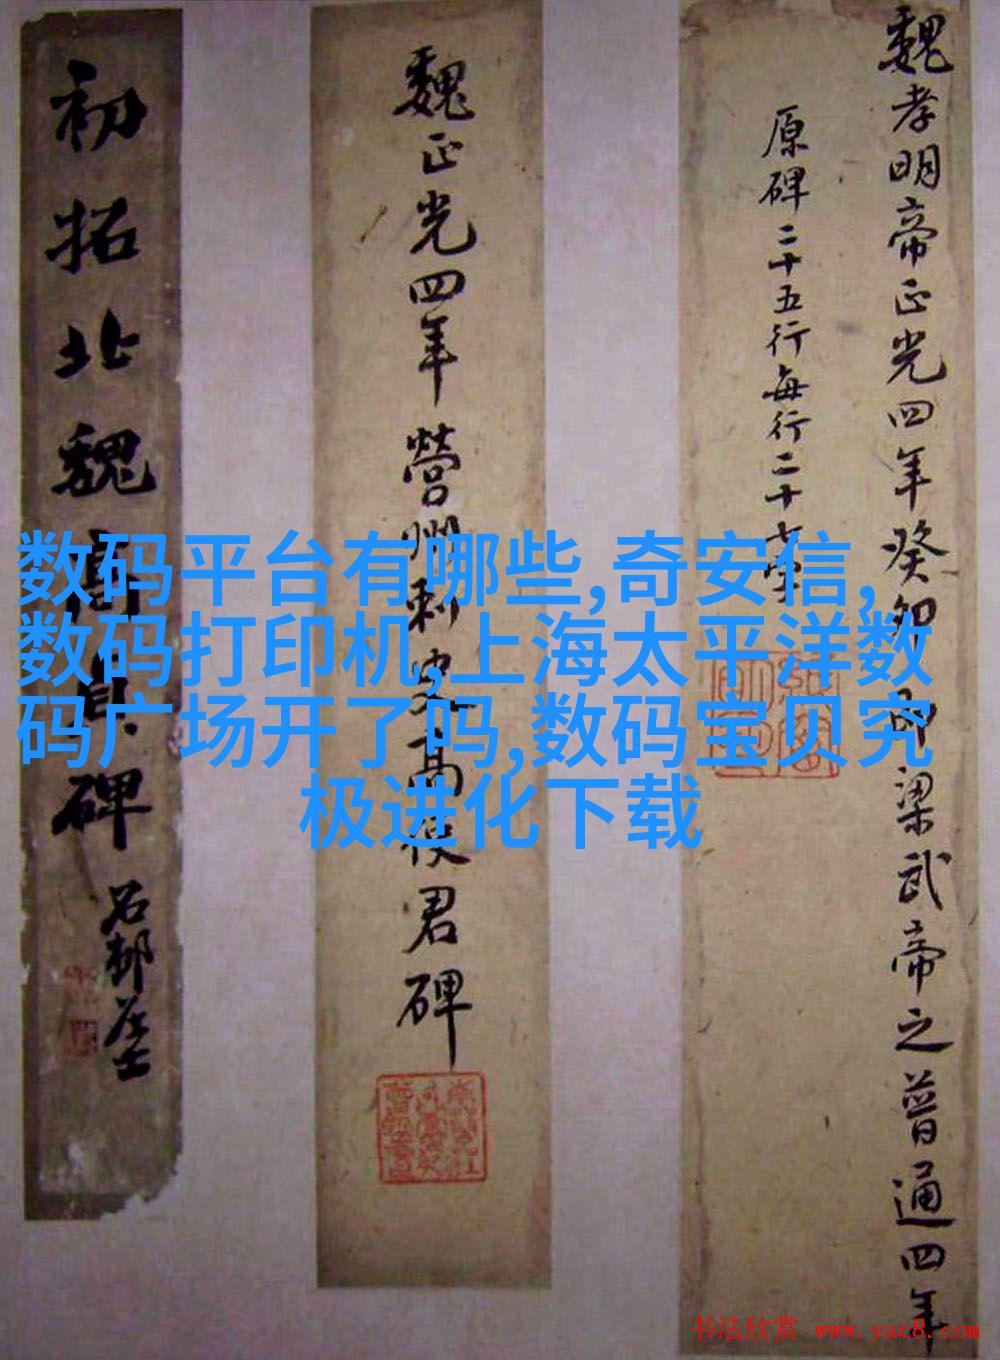 魏孝明帝正光四年癸卯即梁武帝之普通四年
原碑二十五行每行二十七字
魏正光四年營州刺史高使君碑
初拓北魏高貞碑
石邨居士
数码平台有哪些,奇安信,
数码打印机,上海太平洋数
码广场开了吗,数码宝贝究
极进化下载
书法欣赏 www.yac8.com